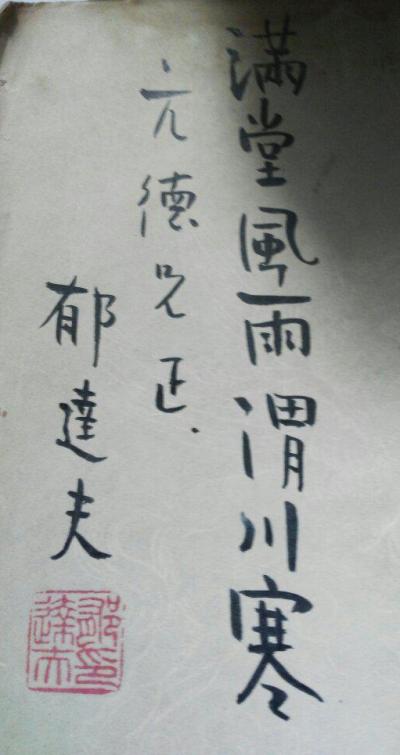 滿堂風雨渭川寒
亢德兄正.
郁達夫
郁印達夫